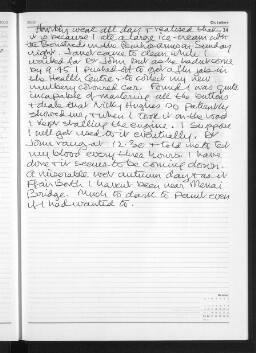 October
Horribly weak all day & realised that
it is because I ate a large ice cream with
in the Sunday
night. Janet came to clean while I
waited for Dr John but as he hadn't come
by 9.45 I pushed off to get a flu jab in
the Health Centre & to collect my new
mulberry coloured car. Found I was quite
incapable of mastering all the buttons
& that Nicky Hughes so patiently
showed me & when I took it on the road
I kept stalling the engine. I suppose
I will get used to it eventually. Dr
John rang at 12.30 & told me to test
my blood every three hours. I have
done & it seems to be coming down.
A miserable wet autumn day & as it
Ffair Borth I haven't been near Menai
Bridge. Much to dark to paint even
if I had wanted to.